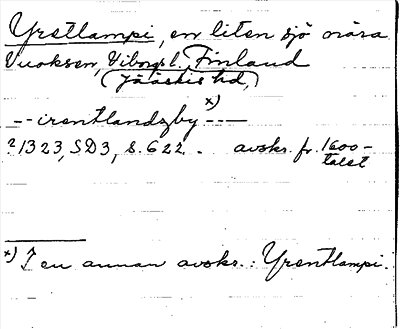 Yrettlampi, en liten sjö nära
Vuoksen, Viborgs l., Finland
(Jääskis hd.)
-- irentlandzby x) ---
? 1323, SD3, s. 622. avskr. fr. 1600-
talet
x) I en annan avskr.: Yrentlampi.